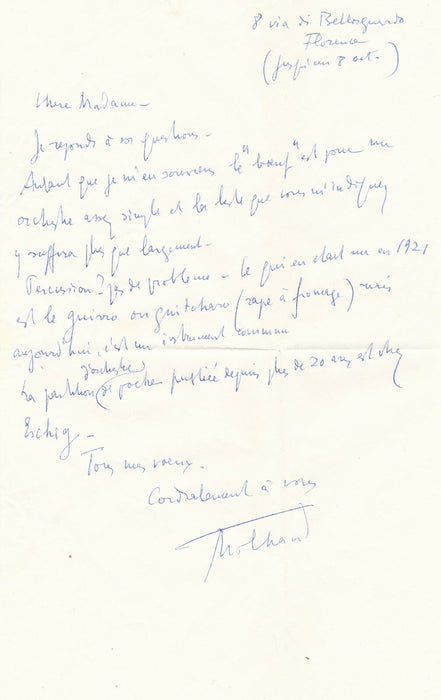 8 via di Bellosguardo
Florence
(jusqu'au 8 oct.)
Chère Madame –
Je réponds à vos questions –
Autant que je m'en souviens le "bœuf" est pour un
orchestre assez simple et la liste que vous m'indiquez
y suffira plus que largement –
Percussion? pas de problème – Ce qui en était un en 1921
est le guirro ou guitcharo (rape à fromage) mais
aujourd'hui, c'est un instrument commun
d'orchestre
La partition (de poche) publiée depuis plus de 20 ans est chez
Eschig –
Tous mes voeux.
Cordialement à vous
Milhaud